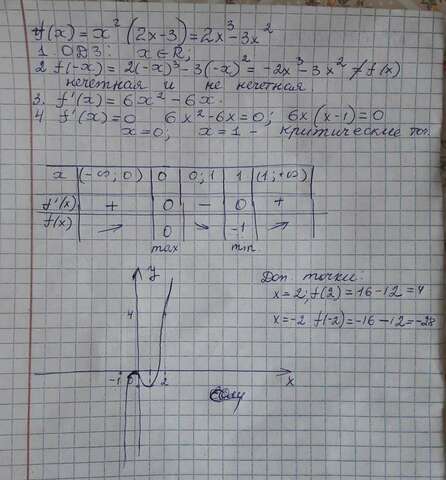 f(x) = x² (2x-3) = 2x³ - 3x²
1. ОВЗ: x∈R;
2 f(-x) = 2(-x)³ - 3(-x)² = -2x³ - 3x² ≠ f(x)
нечетная и не нечетная.
3. f'(x) = 6x² - 6x.
4 f'(x) = 0 6x² - 6x = 0; 6x(x-1) = 0
x = 0; x = 1 - критические
x (-∞; 0) 0 0; 1 1 (1; +∞)
f'(x) + 0 - 0 +
f(x) ↗ 0 ↘ -1 ↗
max min.
Доп точки:
x = 2; f(2) = 16 - 12 = 4
x = -2 f(-2) = -16 - 12 = -28
y
4
-1
2
x